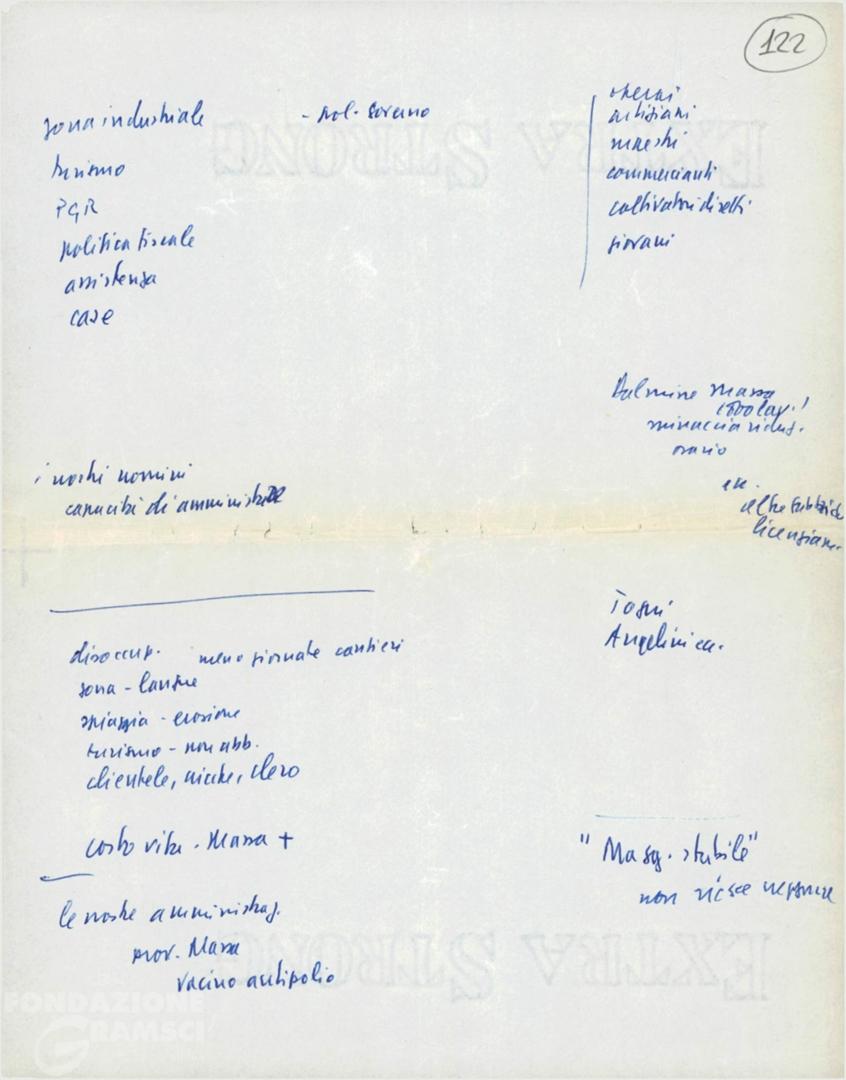 122
zona industriale
turismo
PGR
politica fiscale
assistenza
case
- pol.
operai
artigiani
maestri
commercianti
coltivatori diretti
giovani
Dalmine Massa
minaccia riduz.
orario
altre fabbriche
licenziam.
i nostri uomini
capacità di amministrare
Togni
Angelini ecc.
disoccup. meno giornate cantieri
zona - langue
spiaggia - erosione
turismo - non abb.
clientele, clero
costo vita. Massa +
le nostre amministraz.
prov. Massa
vacino antipolio
"Magg. stabile"
non riesce neppure
EXTRA STRONG
EXTRA STRONG
FONDAZIONE
GRAMSCI